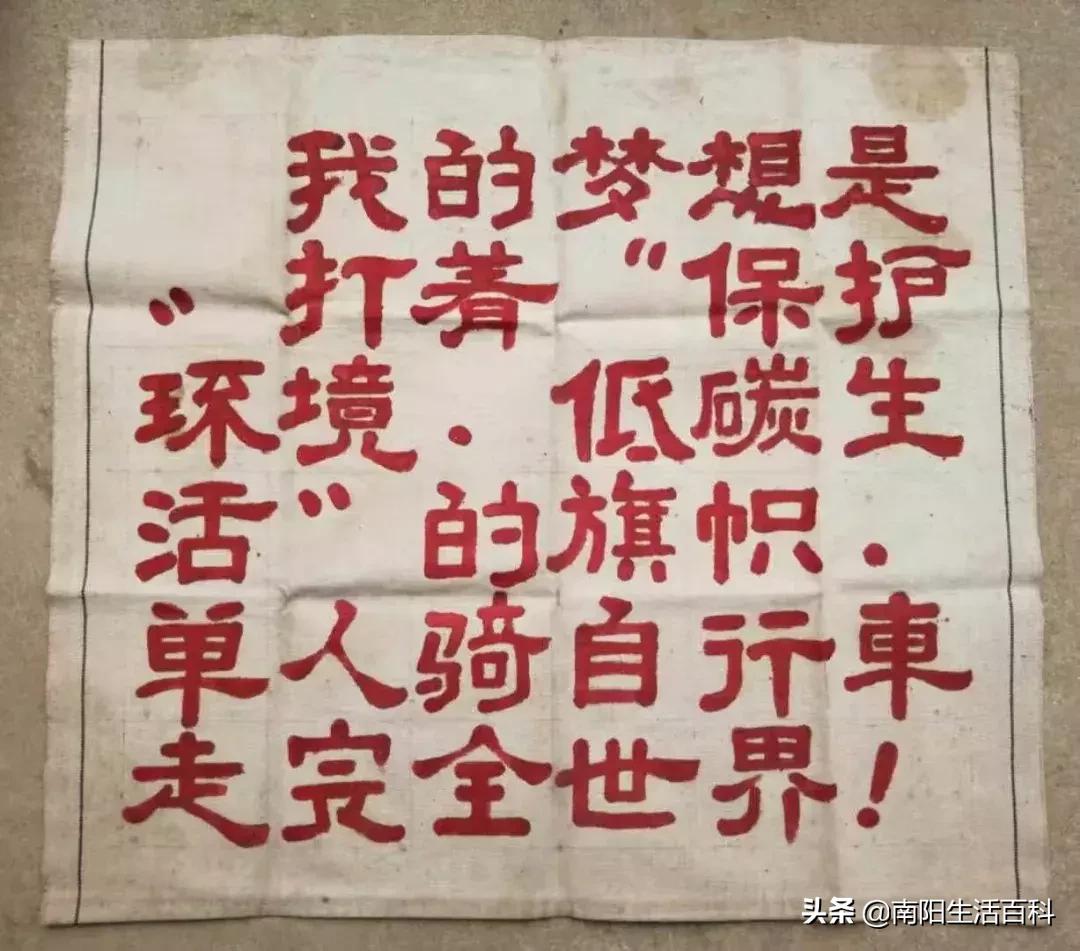 我的梦想是
”打着“保护
环境·低碳生
活”的旗帜·
单人骑自行車
走完全世界！
头条 @南阳生活百科